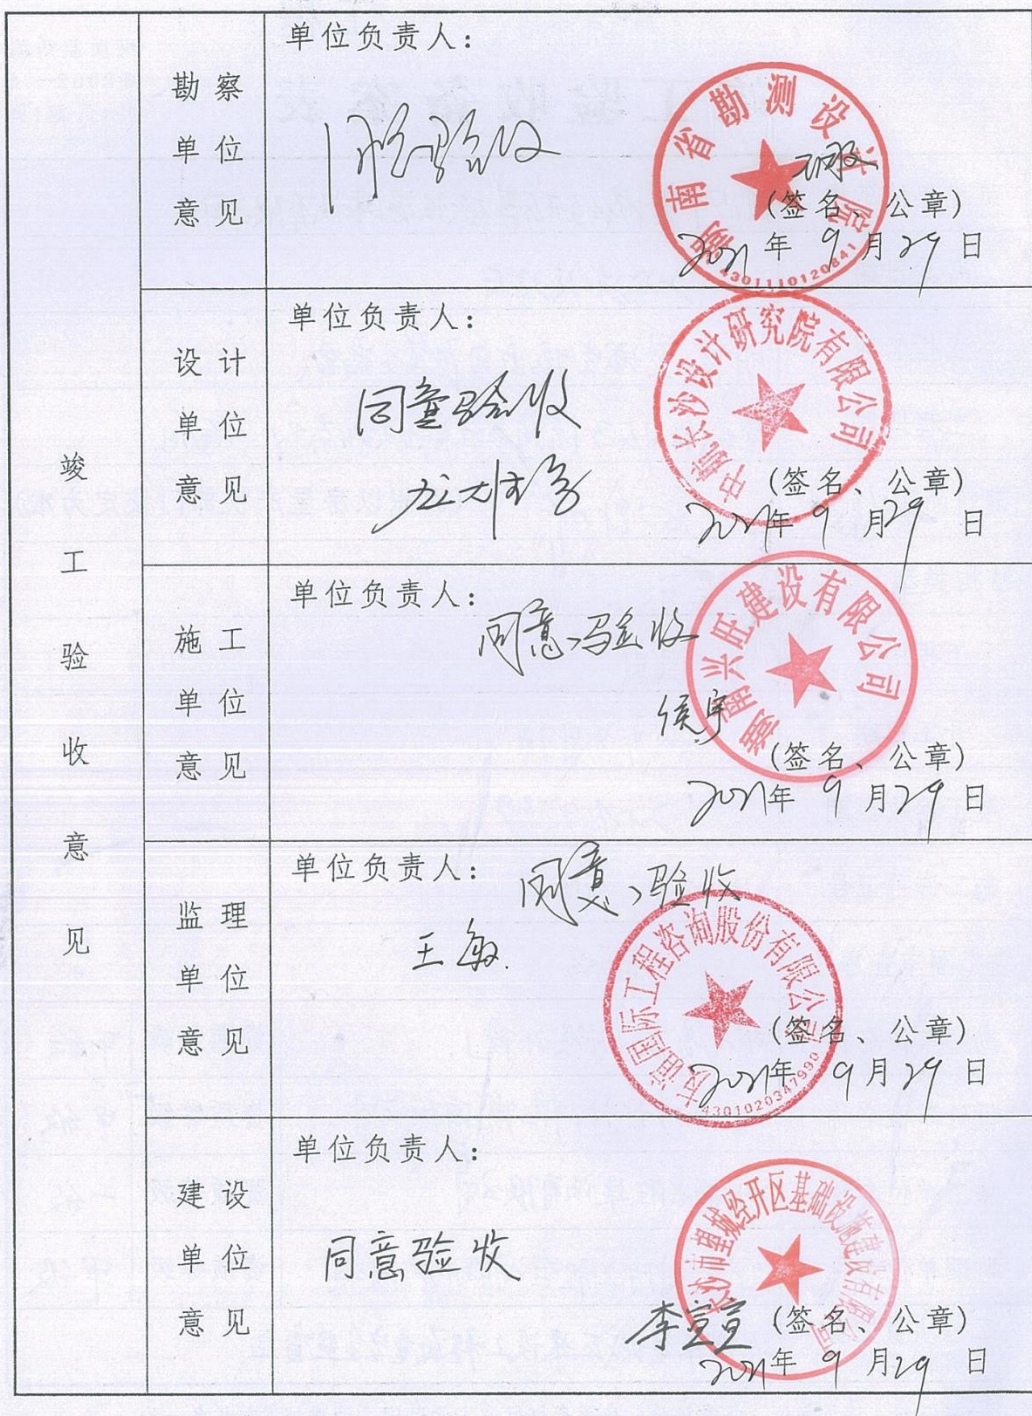 竣工验收意见
勘察单位意见
单位负责人:
同意验收
湖南省勘测设计院
4301110120841
(签名、公章)
2021年9月29日
设计单位意见
单位负责人:
同意验收
中航长沙设计研究院有限公司
(签名、公章)
2021年9月29日
施工单位意见
单位负责人:
同意验收
侯宇
湖南兴旺建设有限公司
(签名、公章)
2021年9月29日
监理单位意见
单位负责人:
同意验收
王敏
友谊国际工程咨询股份有限公司
4301020347990
(签名、公章)
2021年9月29日
建设单位意见
单位负责人:
同意验收
长沙市望城经开区基础设施建设有限公司
李宣宣
(签名、公章)
2021年9月29日